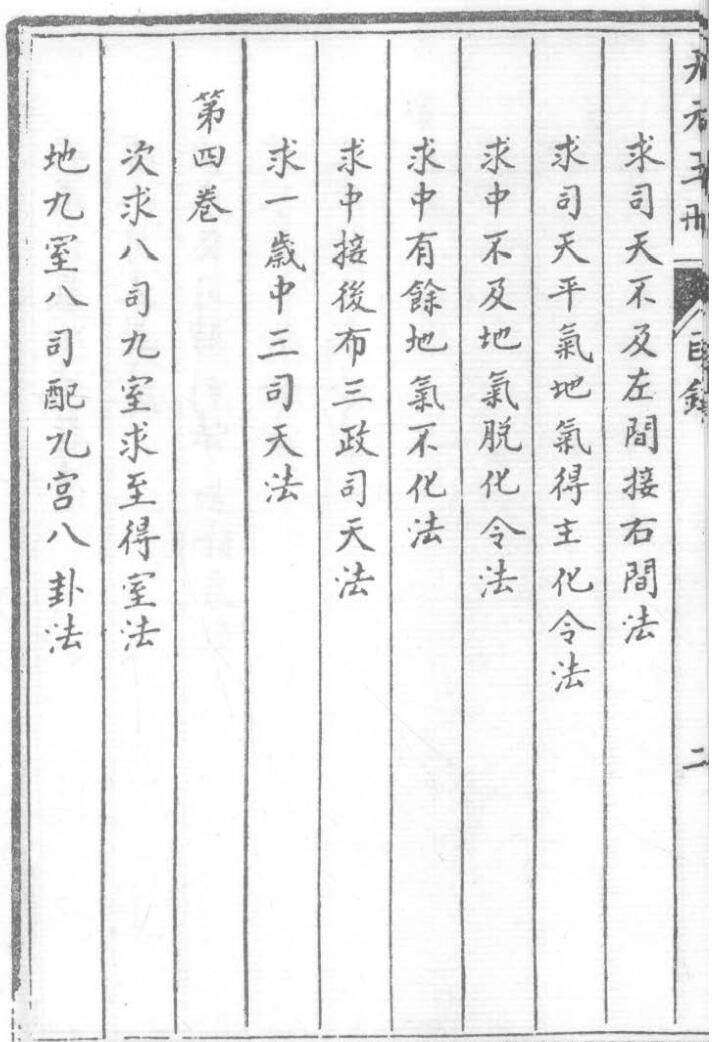 求司天不及左間接右間法
求司天平氣地氣得主化令法
求中不及地氣脱化令法
求中有餘地氣不化法
求中接後布三政司天法
求一歲中三司天法
第四卷
次求八司九室求至得室法
地九室八司配九宫八卦法
目錄
二